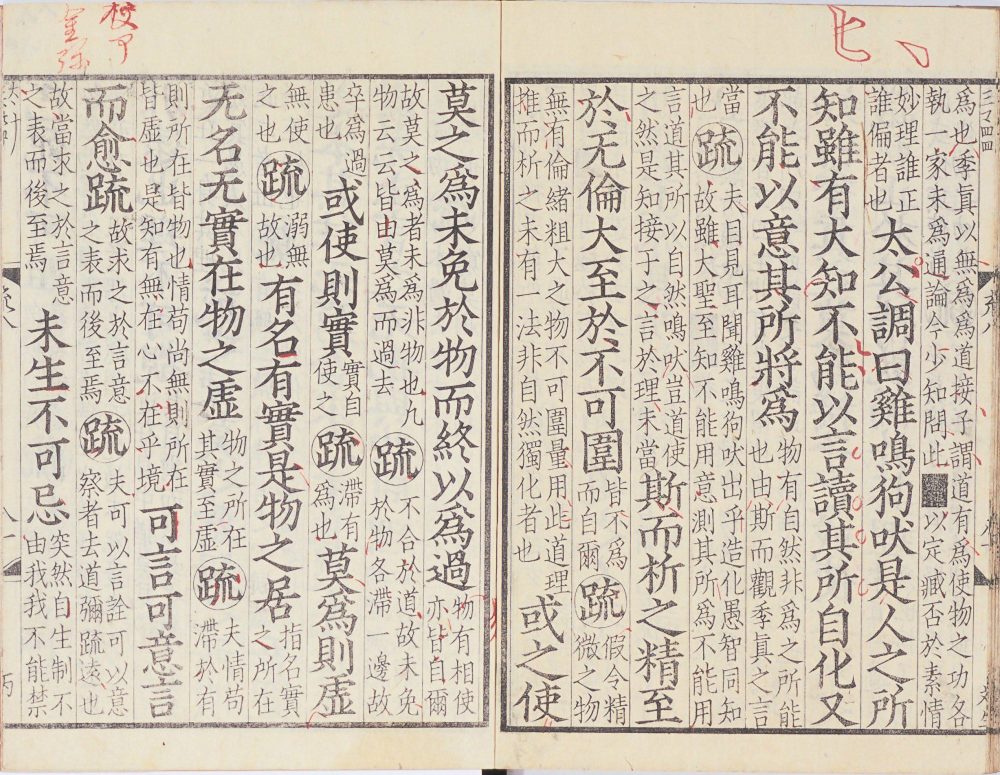 爲也季真以無爲爲道接子謂道有爲使物之功各
執一家未爲通論今少知問此■以定臧否於素情
妙理誰正
誰偏者也
太公調曰雞鳴狗吠是人之所
知雖有大知不能以言讀其所自化又
不能以意其所將爲
物有自然非爲之所能
也由斯而觀季真之言
當
也
疏
夫目見耳聞雞鳴狗吠出乎造化愚智同知
故雖大聖至知不能用意測其所爲不能用
言道其所以自然鳴吠豈道使
之然是知接子之言於理未當
斯而析之精至
於无倫大至於不可圍
皆不爲
而自爾
疏
假令精
微之物
無有倫緒粗大之物不可圍量用此道理
推而析之未有一法非自然獨化者也
或之使
校了
莫之爲未免於物而終以爲過
物有相使
亦皆自爾
故莫之爲者未爲非物也凢
物云云皆由莫爲而過去
疏
不合於道故未免
於物各滯一邊故
卒爲過
患也
或使則實
實自
使之
疏
滯有
爲也
莫爲則虛
無使
之也
疏
溺無
故也
有名有實是物之居
指名實
之所在
无名无實在物之虛
物之所在
其實至虛
疏
夫情苟
滯於有
則所在皆物也情苟尚無則所在
皆虛也是知有無在心不在乎境
可言可意言
而愈疏
故求之於言意
之表而後至焉
疏
夫可以言詮可以意
察者去道彌疏遠也
故當求之於言意
之表而後至焉
未生不可忌
突然自生制不
由我我不能禁